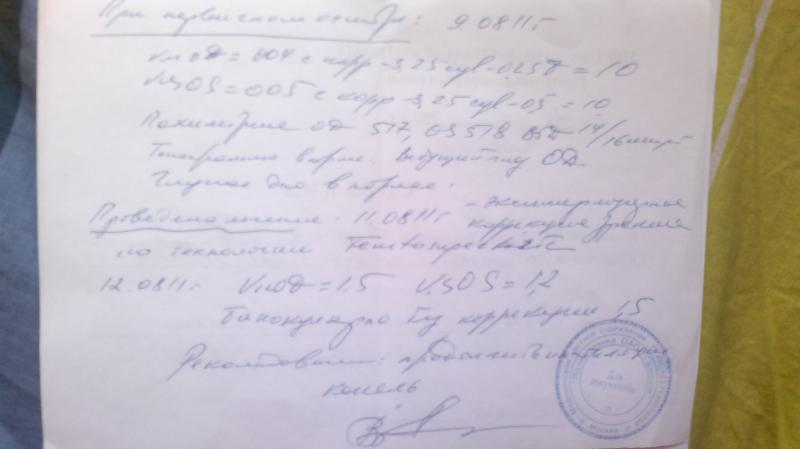 При первичном осмотре: 9.08.11г
Vis OD = 0,04 с корр -3,25 cyl -0,25 D = 1,0
Vis OS = 0,05 с корр -3,25 cyl -0,5 = 1,0
Пахиметрия OD 517, OS 518 ВГД 14/16 мм рт
Топограмма в норме. Ведущий глаз OD.
Глазное дно в норме.
Проведено лечение: 11.08.11г - Эксимерлазерная
коррекция зрения
по технологии
12.08.11г Vis OD = 1,5 Vis OS = 1,2
Бинокулярно без коррекции 1,5
Рекомендовано: продолжить инстилляции
капель
Для
документов